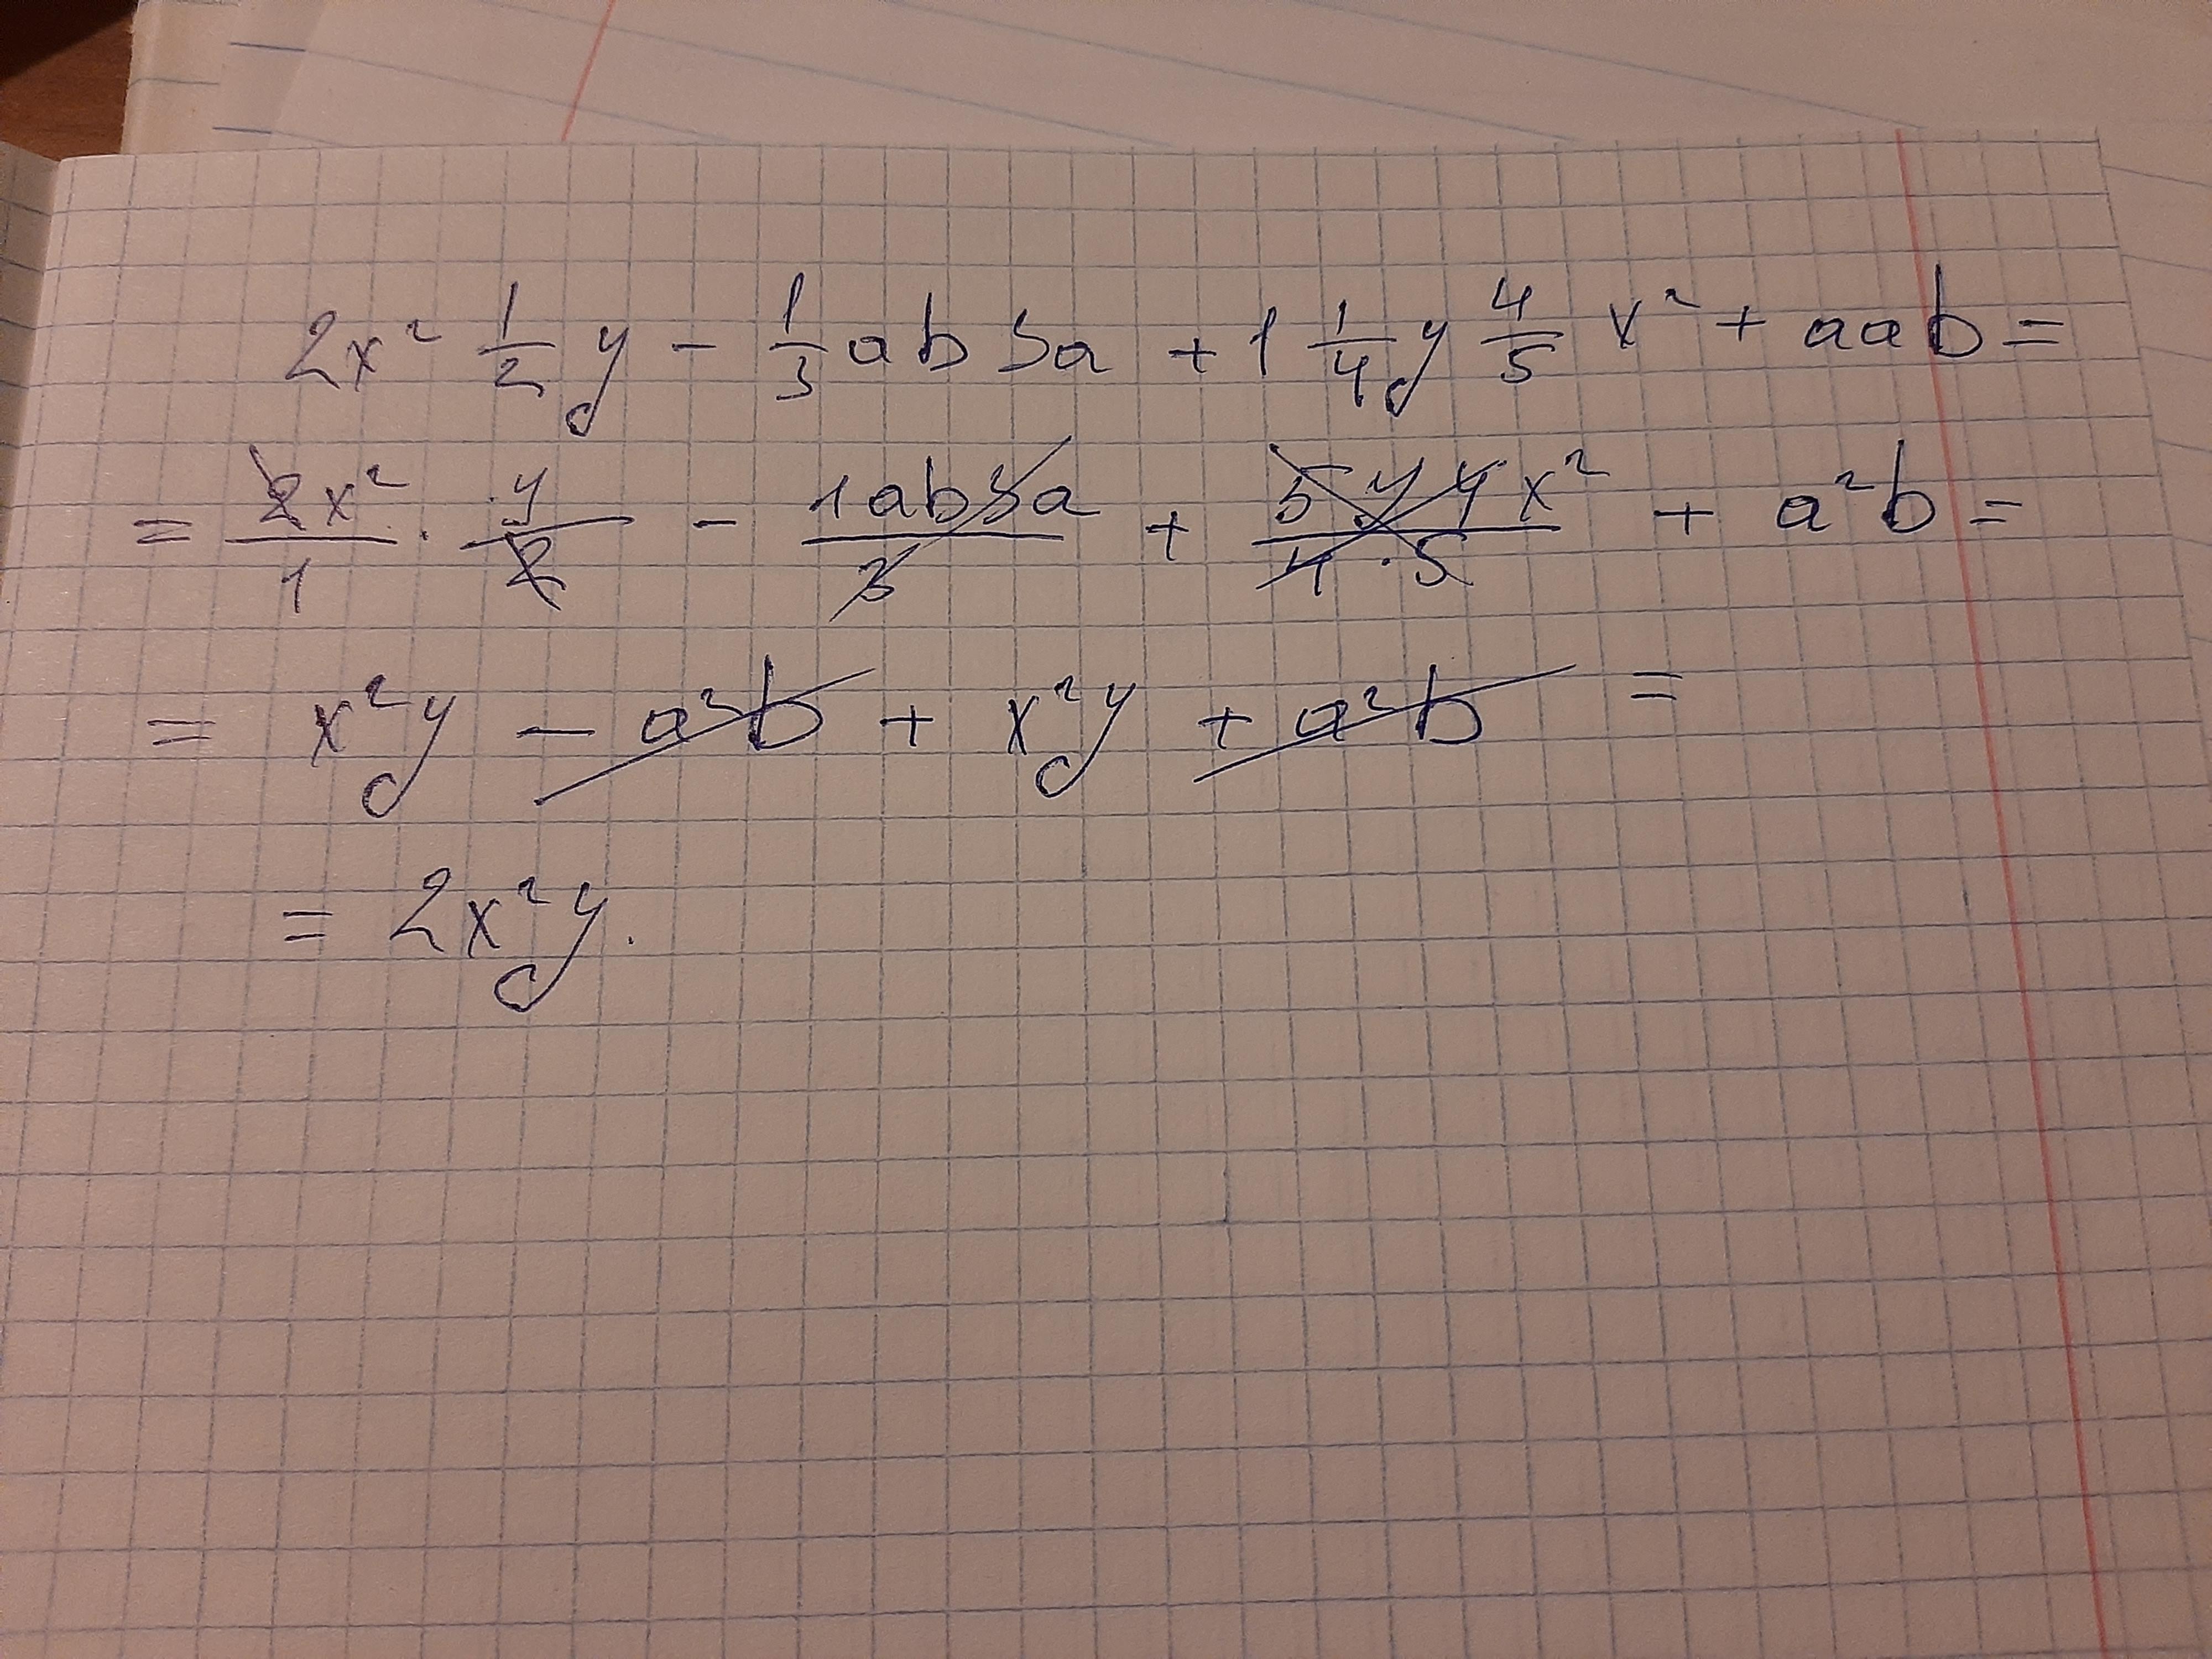 2x² 1/2 y - 1/3 ab 3a + 1 1/4 y 4/5 x² + aab =
= 2x²/1 · y/2 - 1ab3a/3 + 5y4x²/4·5 + a²b =
= x²y - a²b + x²y + a²b =
= 2x²y.